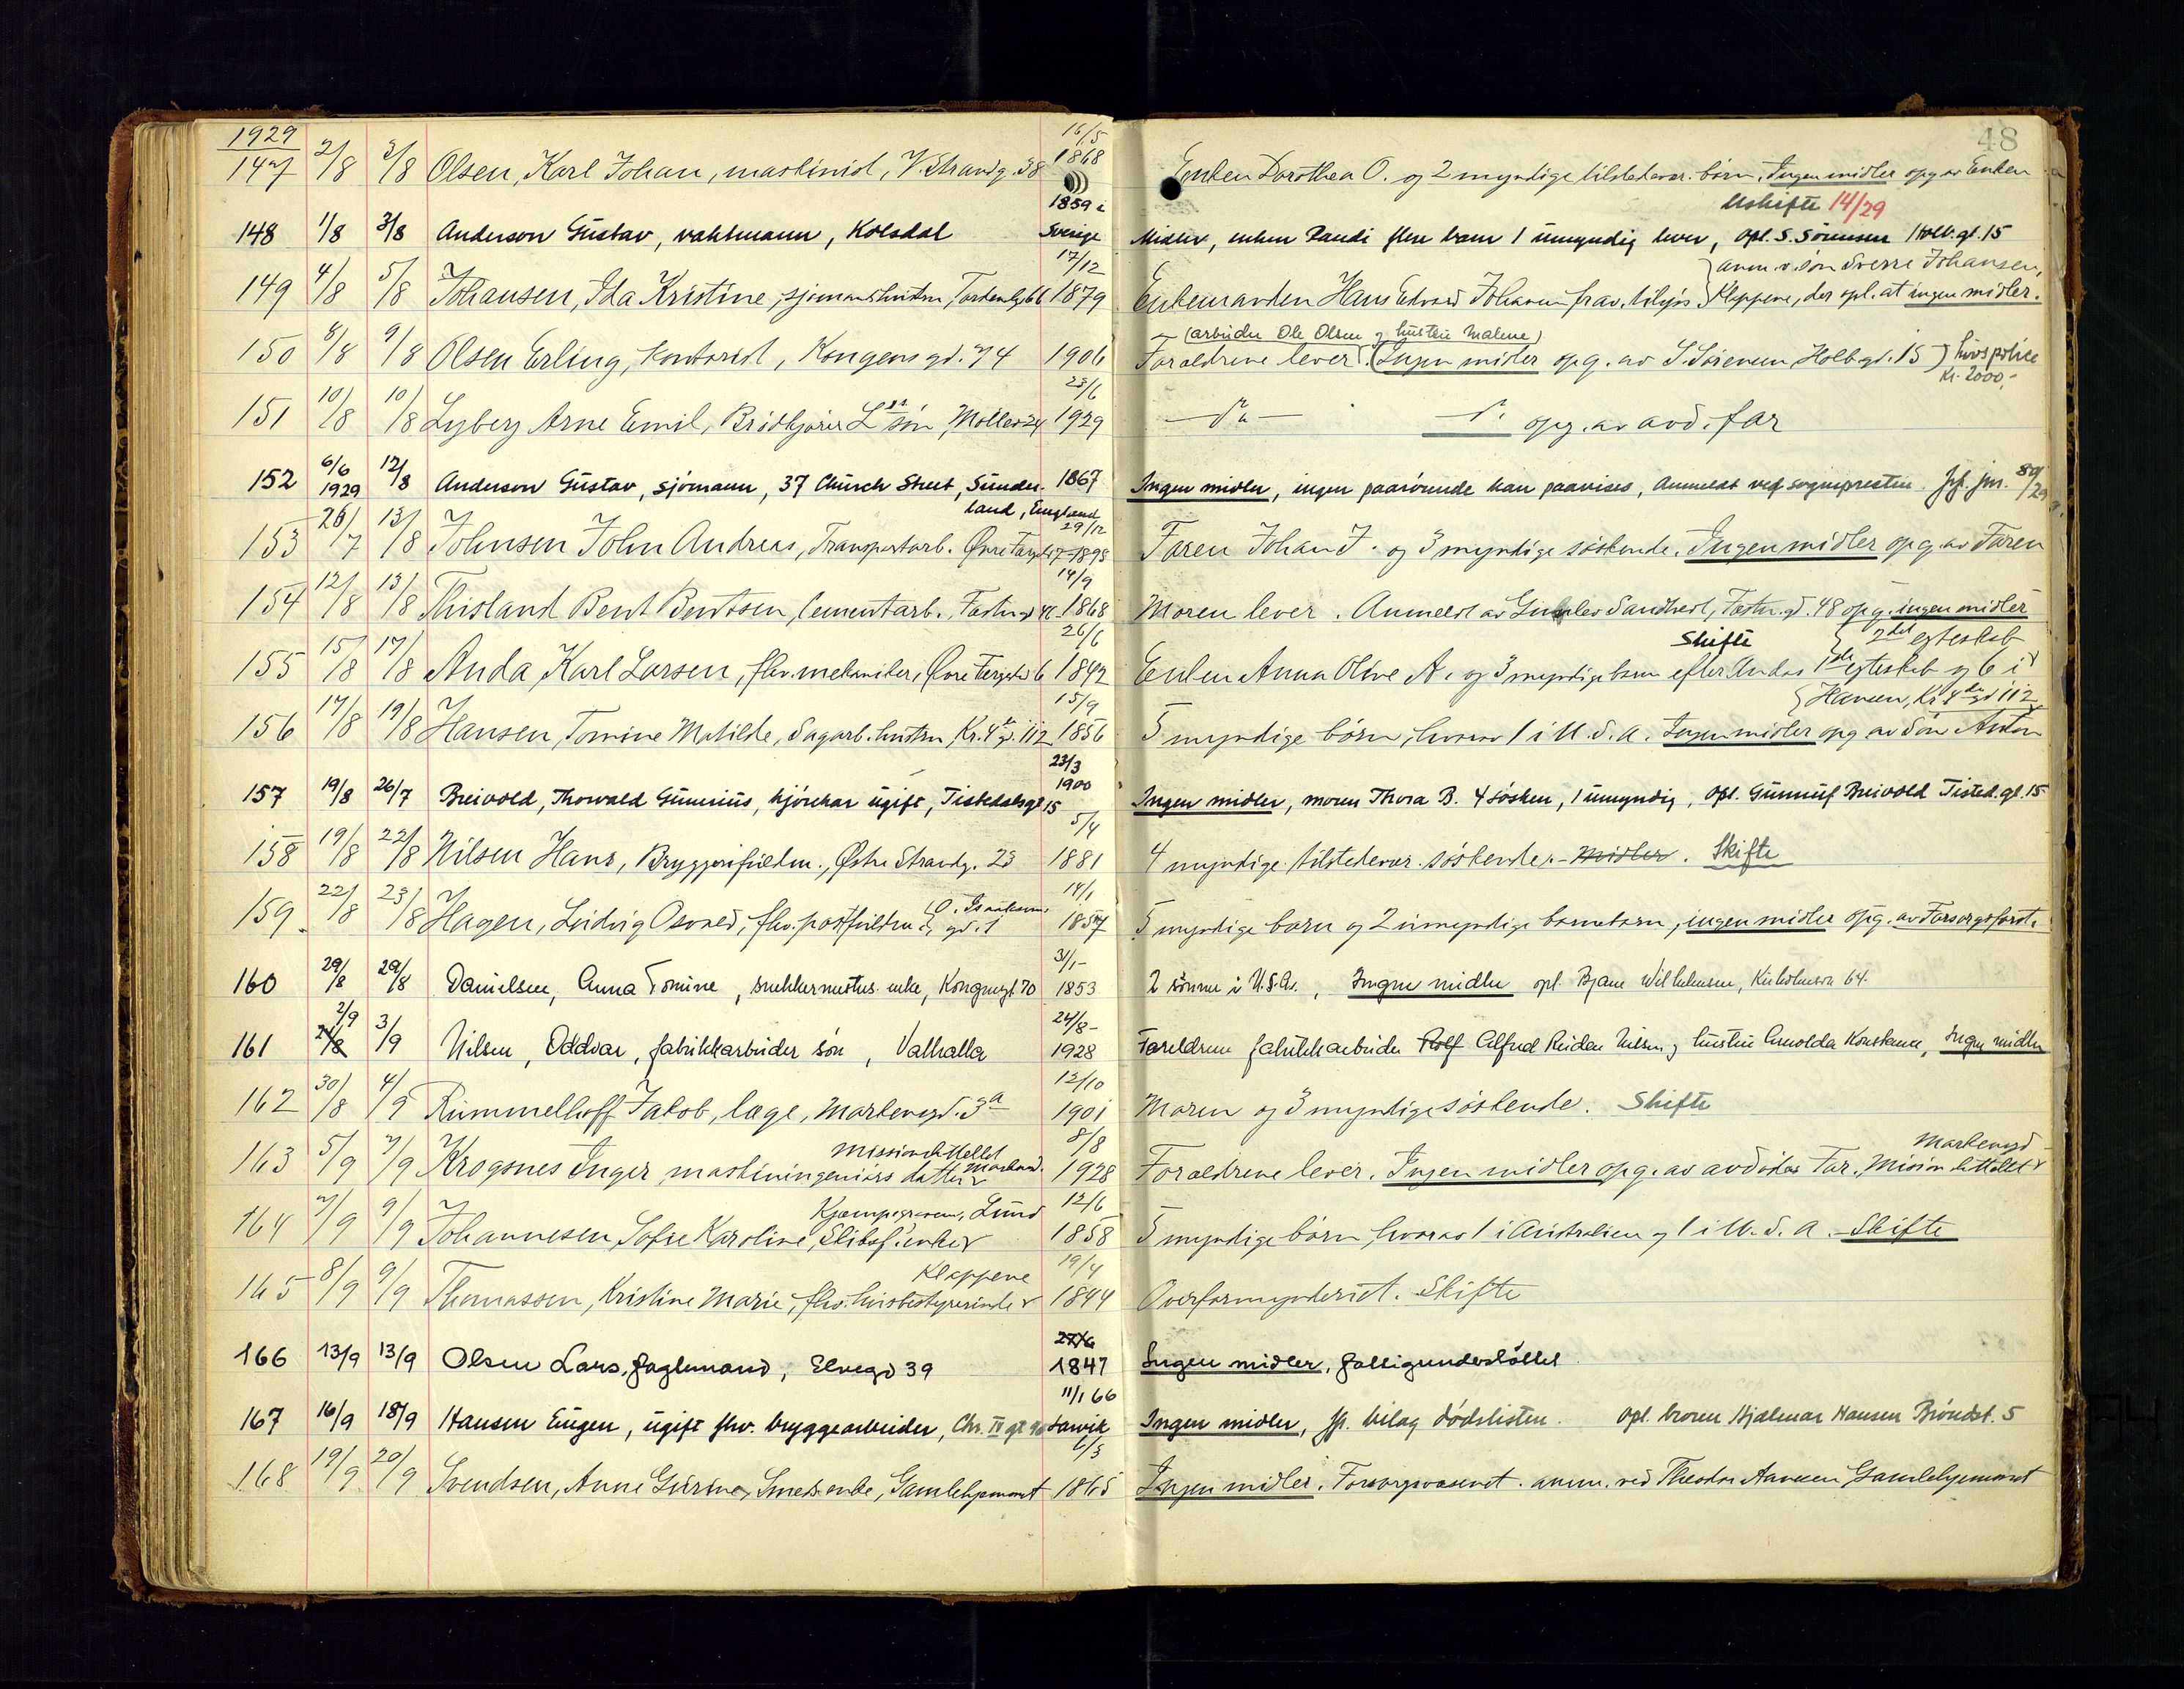 48
1929
147 2/8 3/8 Olsen, Karl Johan, maskinist, V. Strandg. 38 16/5 1868 Enken Dorothea O. og 2 myndige tilstedevær. børn. Ingen midler opg. av Enken
Uskifte 14/29
148 1/8 3/8 Anderson Gustav, vaktmann, Kolsdal 1859 i Sverige Midler, enken Randi flere barn 1 umyndig lever, opl. S. Sörensen Holb.gt. 15
anm. v. søn Sverre Johansen,
149 4/8 5/8 Johansen, Ida Kristine, sjømandshustru, Tordenlg. 66 17/12 1879 Enkemanden Hans Edvard Johansen frav. tilsjøs Kleppene, der opl. at ingen midler.
(arbeider Ole Olsen og hustru Malene)
150 8/8 9/8 Olsen Erling, kontorist, Kongens gd. 74 1906 Forældrene lever. (Ingen midler opg. av S. Sörensen Holbgd. 15) Livspolice Kr. 2000,-
151 10/8 10/8 Lyberg Arne Emil, Brødkjører L.s søn, Møllev. 24 23/6 1929 opg. av avd. far
152 6/6 1929 12/8 Anderson Gustav, sjömann, 37 Church Street, Sunderland, England 1867 Ingen midler, ingen paarörende kan paavises, Anmeldt ved sognepresten. Jfr. jnr. 80/29
153 26/7 13/8 Johnsen John Andreas, Transportarb. 29/12 1898 Faren Johan J. og 3 myndige søskende. Ingen midler opg. av Faren
154 12/8 13/8 Thisland Bent Bentsen, Cementarb., Fæstn.gd 48 14/9 1868 Moren lever. Anmeldt av Sandvest, Fæstn.gd. 48 opg. ingen midler
Skifte 2det egteskab
155 15/8 17/8 Anda Karl Larsen, fhv. mekaniker, 26/6 1842 Enken Anna Olive A. og 3 myndige børn efter Andas 1ste egteskab og 6 i
Hansen, Kr. 4des gd 112
156 17/8 19/8 Hansen, Tomine Matilde, Sagarb. hustru, Kr. 4des gd. 112 15/9 1856 5 myndige børn, hvorav 1 i U.S.A. Ingen midler opg. av Søn Anton
157 19/8 26/7 Breivold, Thorvald Gunerius, kjörekar ugift, Tistedalsgt. 15 23/3 1900 Ingen midler, moren Thora B. 4 søsken, 1 umyndig, opl. Gunnuf Breivold Tisted.gt. 15
158 19/8 22/8 Nilsen Hans, Bryggeriformand, Østre Strandg. 23 5/4 1881 4 myndige tilstedevær. søskende. - Midler. Skifte
159 22/8 23/8 Hagen, Ludvig Osvald, fhv. postfuldm. gd. 1 14/1 1857 5 myndige børn og 2 umyndige barnebarn, ingen midler opg. av Forsorgsforst.
160 29/8 29/8 Danielsen, Anna Tomine, snekkermesters enke, Kongensgt. 70 31/1- 1853 2 sønner i U.S.A., Ingen midler opl. Bjarne Wilhelmsen, Kirkholmsvn 64.
161 2/9 3/9 Nilsen, Oddvar, fabrikkarbeider søn, Valhalla 24/8- 1928 Foreldrene fabrikkarbeider Rolf Alfred Reidar Nilsen og hustru Arnolda Konstance, Ingen midler
162 30/8 4/9 Rummelhoff Jakob, læge, Markensgd. 3a 12/10 1901 Moren og 3 myndige søskende. Skifte
163 5/9 7/9 Krogsnes Inger maskiningeniørs datter Missionshotellet Markensd. 8/8 1928 Forældrene lever. Ingen midler opg. av avdødes Far. Missionshotellet Markensgd
164 7/9 9/9 Johannesen, Sofie Karoline, Skibsf. enke Kjempegraven, Lund 12/6 1858 5 myndige børn, hvorav 1 i Australien og 1 i U.S.A. - Skifte
165 8/9 9/9 Thomassen, Kristine Marie, fhv. husbestyrerinde Kleppene 19/4 1844 Overformynderiet. Skifte
166 13/9 13/9 Olsen Lars, faglemand, Elvegd 39 27/6 1847 Ingen midler, fattigunderstöttet
167 16/9 18/9 Hansen Eugen, ugift fhv. bryggearbeider, Chr. IV gt. 90 11/1 66 Larvik Ingen midler, jfr. bilag dödslisten. Opl. broren Hjalmar Hansen Bröndst. 5
168 19/9 20/9 Svendsen, Anne Gurine, Smeds enke, Gamlehjemmet 6/3 1865 Ingen midler. Forsorgsvæsenet. anm. ved Theodor Aanesen Gamlehjemmet